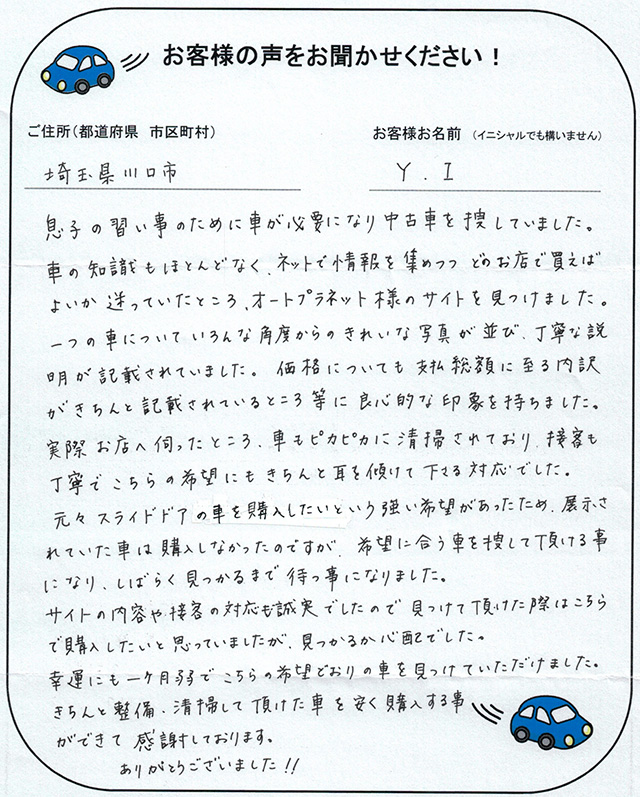 お客様の声をお聞かせください！
ご住所（都道府県　市区町村）
お客様お名前　（イニシャルでも構いません）
埼玉県川口市
Y．I
息子の習い事のために車が必要になり中古車を捜していました。
車の知識もほとんどなく、ネットで情報を集めつつ どのお店で買えば
よいか 迷っていたところ、オートプラネット様のサイトを見つけました。
一つの車について いろんな角度からのきれいな写真が並び、丁寧な説
明が記載されていました。価格についても 支払総額に至る内訳
がきちんと記載されているところ等に良心的な印象を持ちました。
実際お店へ伺ったところ、車もピカピカに清掃されており、接客も
丁寧で こちらの希望にも きちんと耳を傾けて下さる対応でした。
元々スライドドアの車を購入したいという強い希望があったため、展示さ
れていた車は購入しなかったのですが、希望に合う車を捜して頂ける事
になり、しばらく見つかるまで待つ事になりました。
サイトの内容や接客の対応も誠実でしたので 見つけて頂けた際はこちら
で購入したいと思っていましたが、見つかるか心配でした。
幸運にも一ヶ月弱で こちらの希望どおりの車を見つけていただけました。
きちんと整備、清掃して頂けた車を安く購入する事
ができて 感謝しております。
ありがとうございました!!